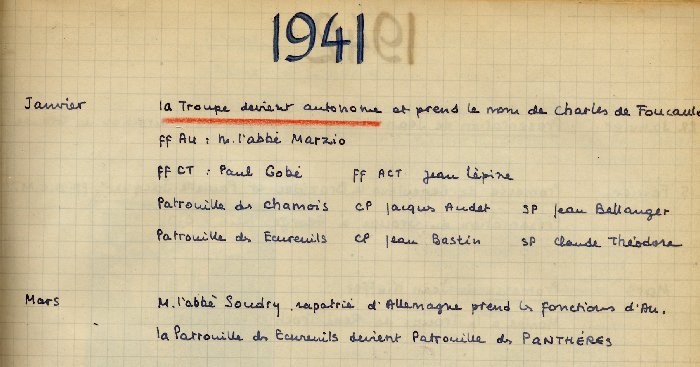 1941
Janvier la Troupe devient autonome et prend le nom de Charles de Foucauld
ff Au : M. l'abbé Marzio
ff CT : Paul Gobé ff ACT Jean Lépine
Patrouille des Chamois CP Jacques Audet SP Jean Bellanger
Patrouille des Ecureuils CP Jean Bastin SP Claude Théodore
Mars M. l'abbé Soudry, rapatrié d'Allemagne prend les fonctions d'Au.
la Patrouille des Ecureuils devient Patrouille des PANTHÉRES